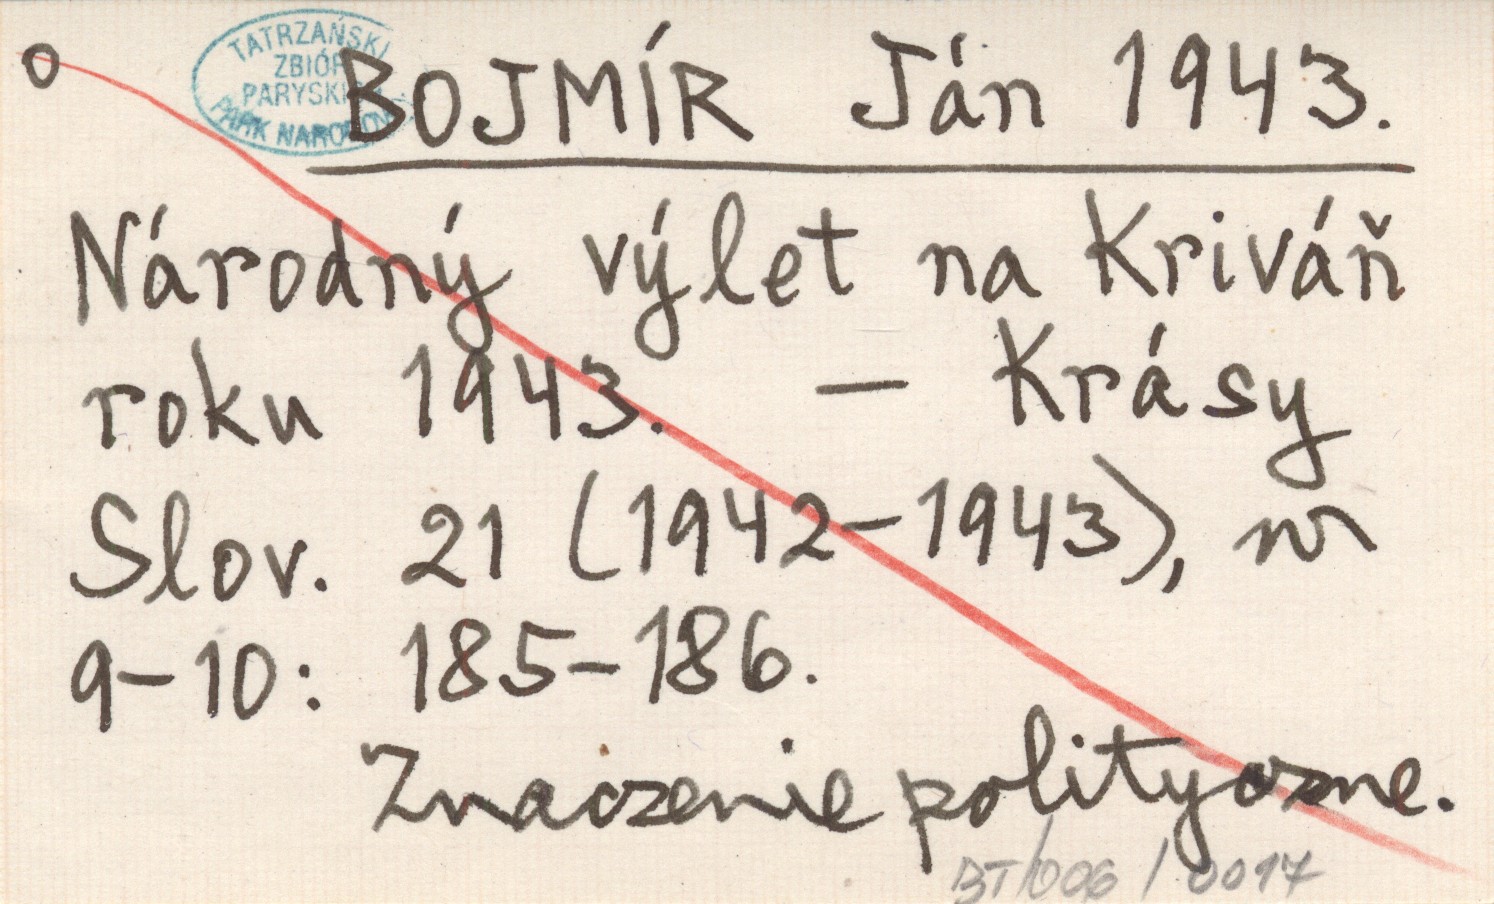 TATRZAŃSKI
ZBIÓR
PARYSKI
PARK NARODOWY
BOJMÍR Ján 1943.
Národný výlet na Kriváň
roku 1943. — Krásy
Slov. 21 (1942–1943), nr
9–10: 185–186.
Znaczenie polityczne.
BT/006/0017